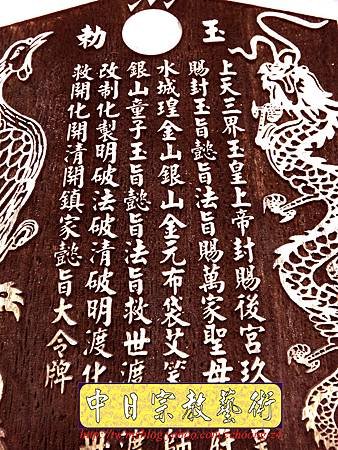 玉
勅
上天三界玉皇上帝封賜後宮玖
賜封玉旨懿旨法旨賜萬家聖母
水城瑝金山銀山金元布袋艾
銀山童子玉旨懿旨法旨救世渡
改制化製明破法破清破明渡化
救開化開清開鎮家懿旨大令牌
中日宗教藝術